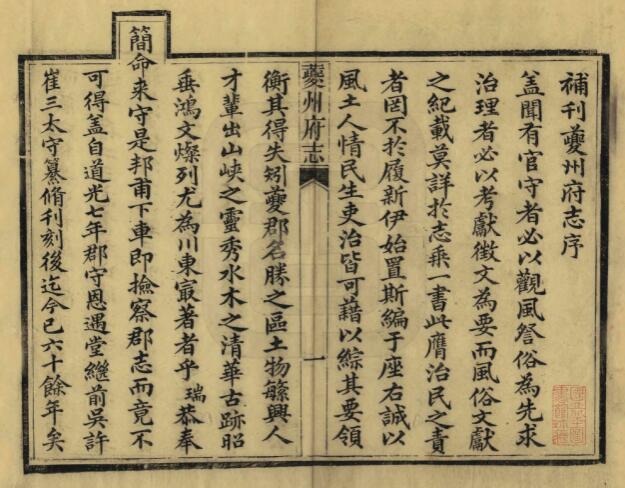 補刊夔州府志序
蓋聞有官守者必以觀風詧俗為先求
治理者必以考獻徵文為要而風俗文獻
之紀載莫詳於志乘一書此膺治民之責
者罔不於履新伊始置斯編于座右誠以
風土人情民生吏治皆可藉以綜其要領
夔州府志
一
衡其得失矧夔郡名勝之區土物蘇興人
才輩出山峽之靈秀水木之清華古跡昭
垂鴻文燦列尤為川東冣著者乎瑞恭奉
簡命來守是邦甫下車即撿察郡志而竟不
可得蓋自道光七年郡守恩遇堂繼前吳許
崔三太守纂脩刊刻後迄今已六十餘年矣